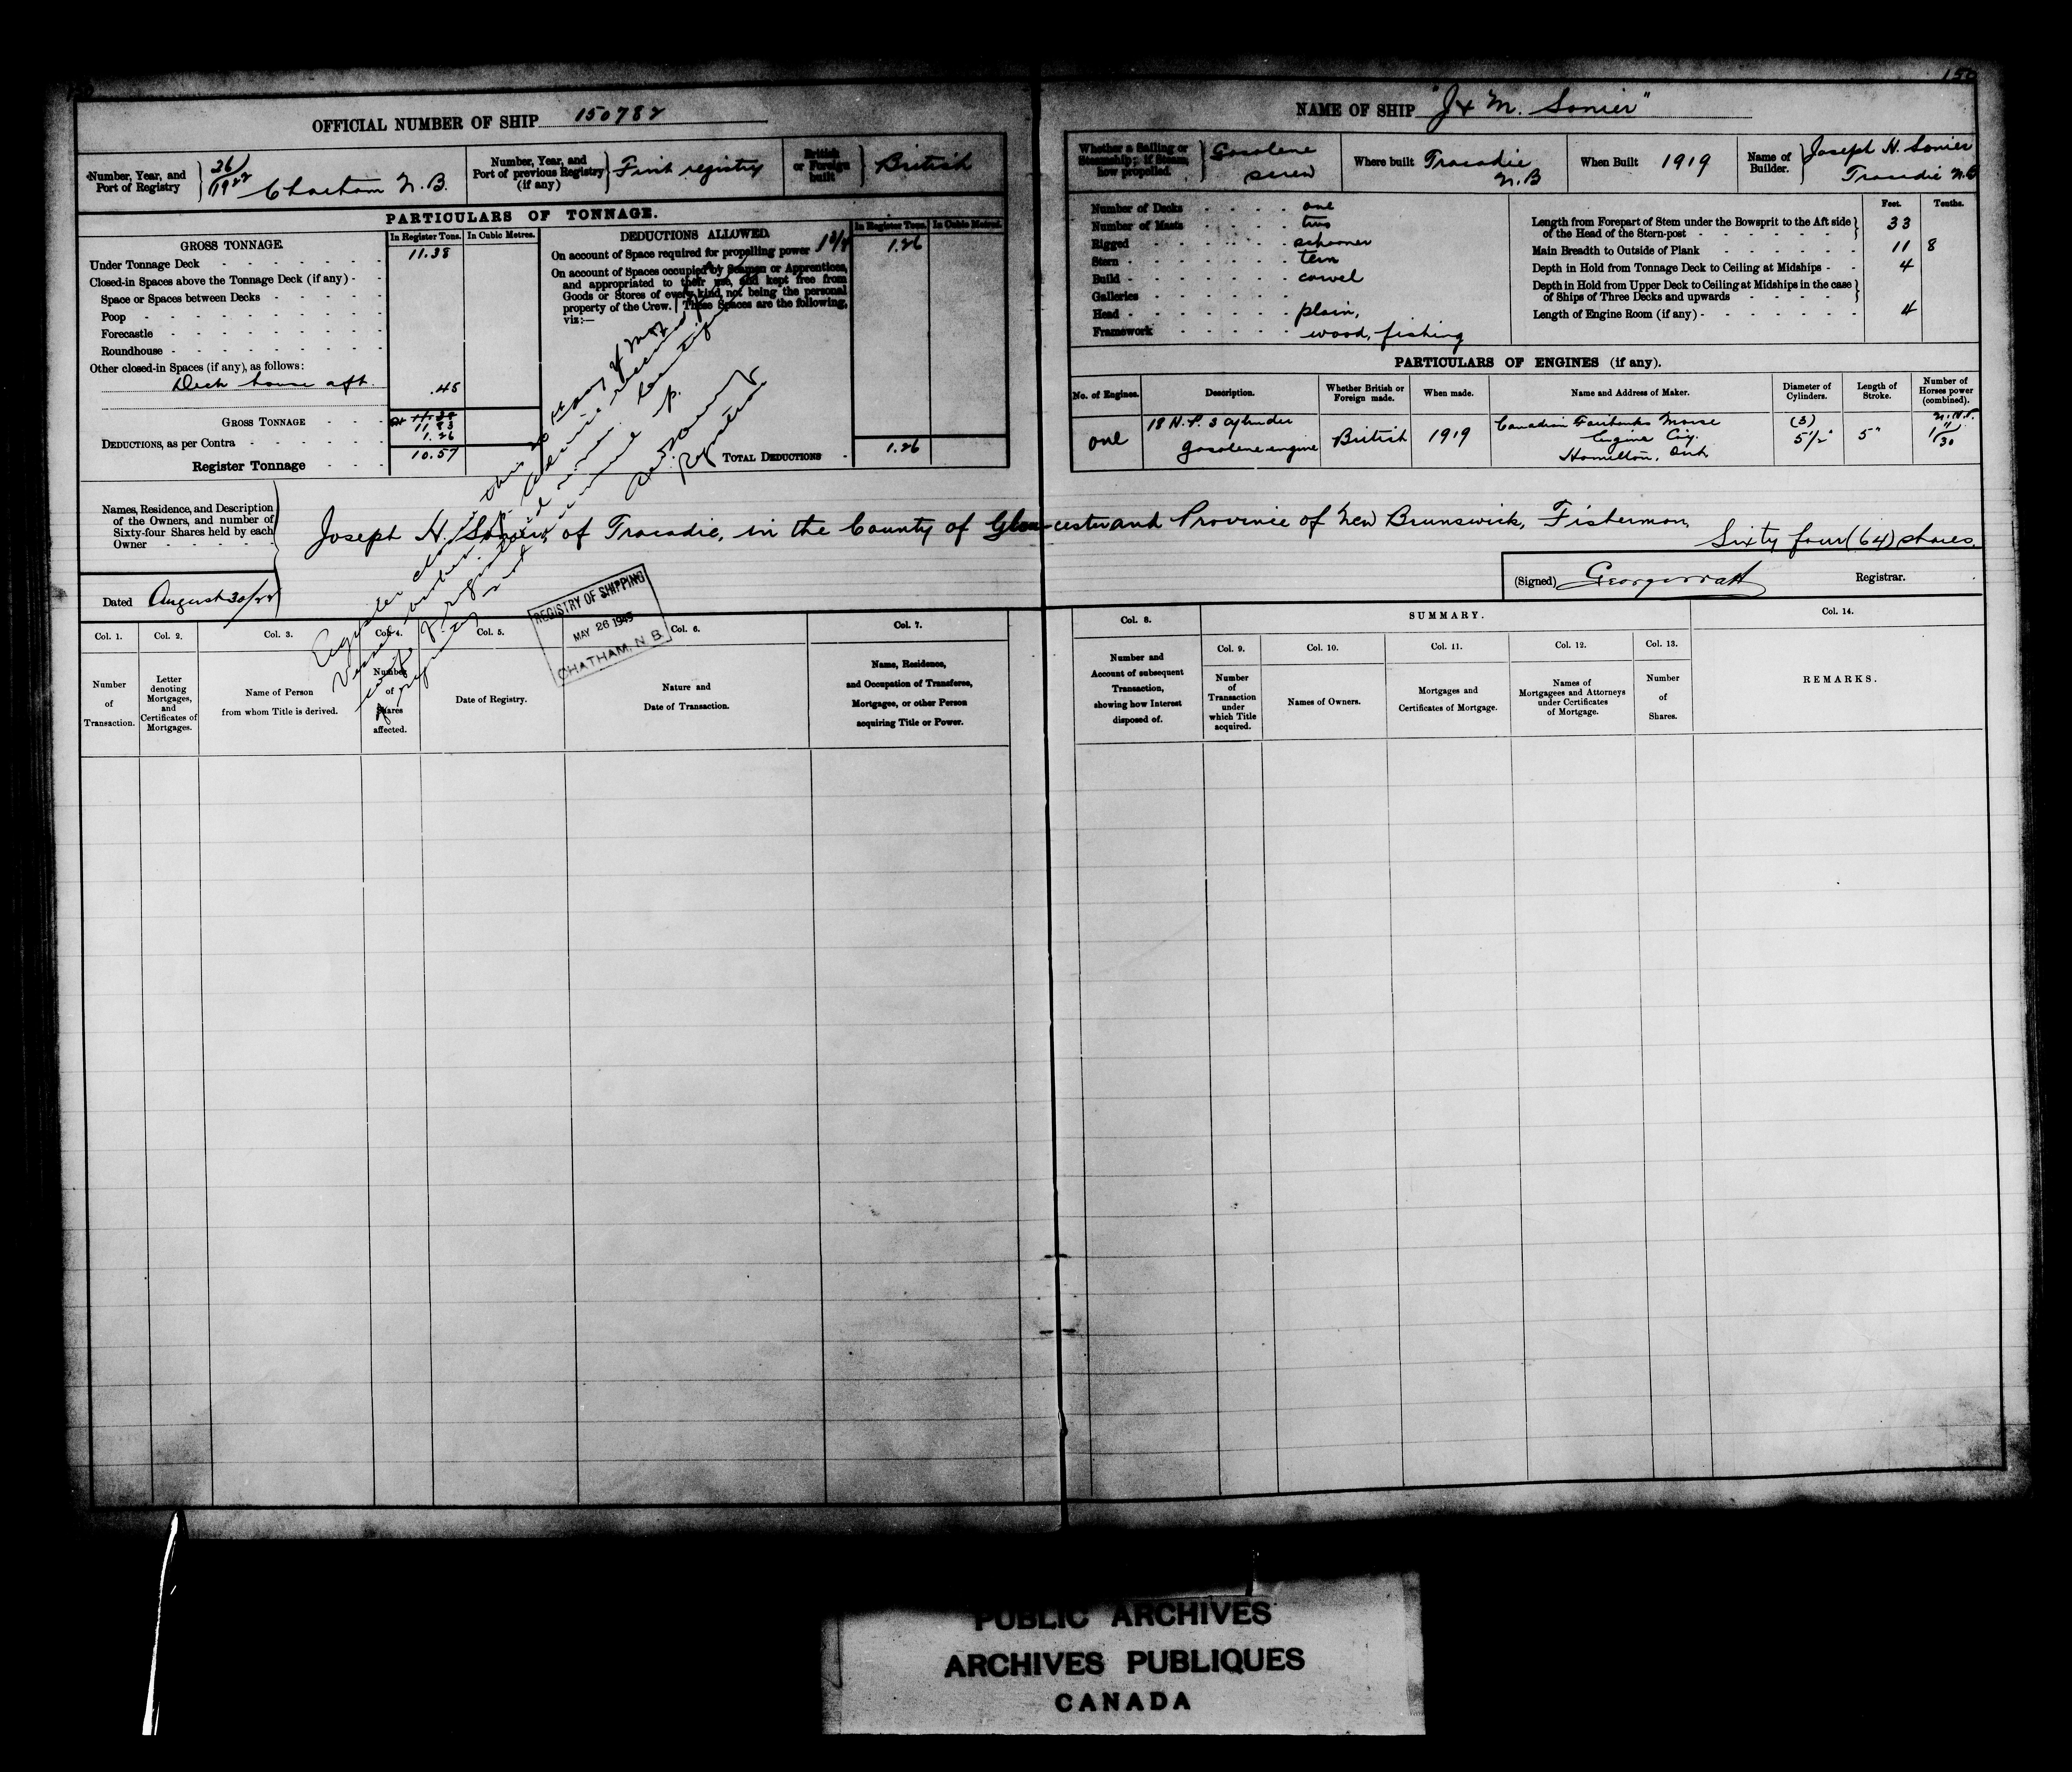 150
OFFICIAL NUMBER OF SHIP 150782
Number, Year, and Port of Registry 36/1922 Chatham N.B.
Number, Year, and Port of previous Registry (if any) First registry
British or Foreign built British
PARTICULARS OF TONNAGE.
GROSS TONNAGE.
In Register Tons.
In Cubic Metres.
Under Tonnage Deck 11.38
Closed-in Spaces above the Tonnage Deck (if any)
Space or Spaces between Decks
Poop
Forecastle
Roundhouse
Other closed-in Spaces (if any), as follows:
Deck house aft. .45
GROSS TONNAGE 11.38
11.83
DEDUCTIONS, as per Contra 1.26
Register Tonnage 10.57
DEDUCTIONS ALLOWED.
In Register Tons.
In Cubic Metres.
On account of Space required for propelling power 1.26
On account of Spaces occupied by Seamen or Apprentices,
and appropriated to their use, and kept free from
Goods or Stores of every kind, not being the personal
property of the Crew. These Spaces are the following,
viz:—
TOTAL DEDUCTIONS 1.26
Names, Residence, and Description
of the Owners, and number of
Sixty-four Shares held by each
Owner
Joseph H. Sonier of Tracadie, in the County of Gloucester and Province of New Brunswick, Fisherman,
Sixty four (64) shares.
Dated August 30/22
Register closed this
Vessel
Registrar
REGISTRY OF SHIPPING
MAY 26 1945
CHATHAM, N. B.
Col. 1. Number of Transaction.
Col. 2. Letter denoting Mortgages, and Certificates of Mortgages.
Col. 3. Name of Person from whom Title is derived.
Col. 4. Number of Shares affected.
Col. 5. Date of Registry.
Col. 6. Nature and Date of Transaction.
Col. 7. Name, Residence, and Occupation of Transferee, Mortgagee, or other Person acquiring Title or Power.
150
NAME OF SHIP "J & M. Sonier"
Whether a Sailing or Steamship; if Steam, how propelled. Gasolene screw
Where built Tracadie N.B
When Built 1919
Name of Builder. Joseph H. Sonier Tracadie N.B
Number of Decks one
Number of Masts two
Rigged schooner
Stern
Build carvel
Galleries
Head plain,
Framework wood, fishing
Feet. Tenths.
Length from Forepart of Stem under the Bowsprit to the Aft side of the Head of the Stern-post 33
Main Breadth to Outside of Plank 11 8
Depth in Hold from Tonnage Deck to Ceiling at Midships 4
Depth in Hold from Upper Deck to Ceiling at Midships in the case of Ships of Three Decks and upwards
Length of Engine Room (if any) 4
PARTICULARS OF ENGINES (if any).
No. of Engines.
Description.
Whether British or Foreign made.
When made.
Name and Address of Maker.
Diameter of Cylinders.
Length of Stroke.
Number of Horses power (combined).
one
18 H.P. 3 cylinder
gasolene engine
British
1919
Canadian Fairbanks Morse
Engine Coy.
Hamilton, Ont.
(3)
5½"
5"
N.H.P.
(Signed) George Watt Registrar.
Col. 8. Number and Account of subsequent Transaction, showing how Interest disposed of.
SUMMARY.
Col. 9. Number of Transaction under which Title acquired.
Col. 10. Names of Owners.
Col. 11. Mortgages and Certificates of Mortgage.
Col. 12. Names of Mortgagees and Attorneys under Certificates of Mortgage.
Col. 13. Number of Shares.
Col. 14.
REMARKS.
PUBLIC ARCHIVES
ARCHIVES PUBLIQUES
CANADA